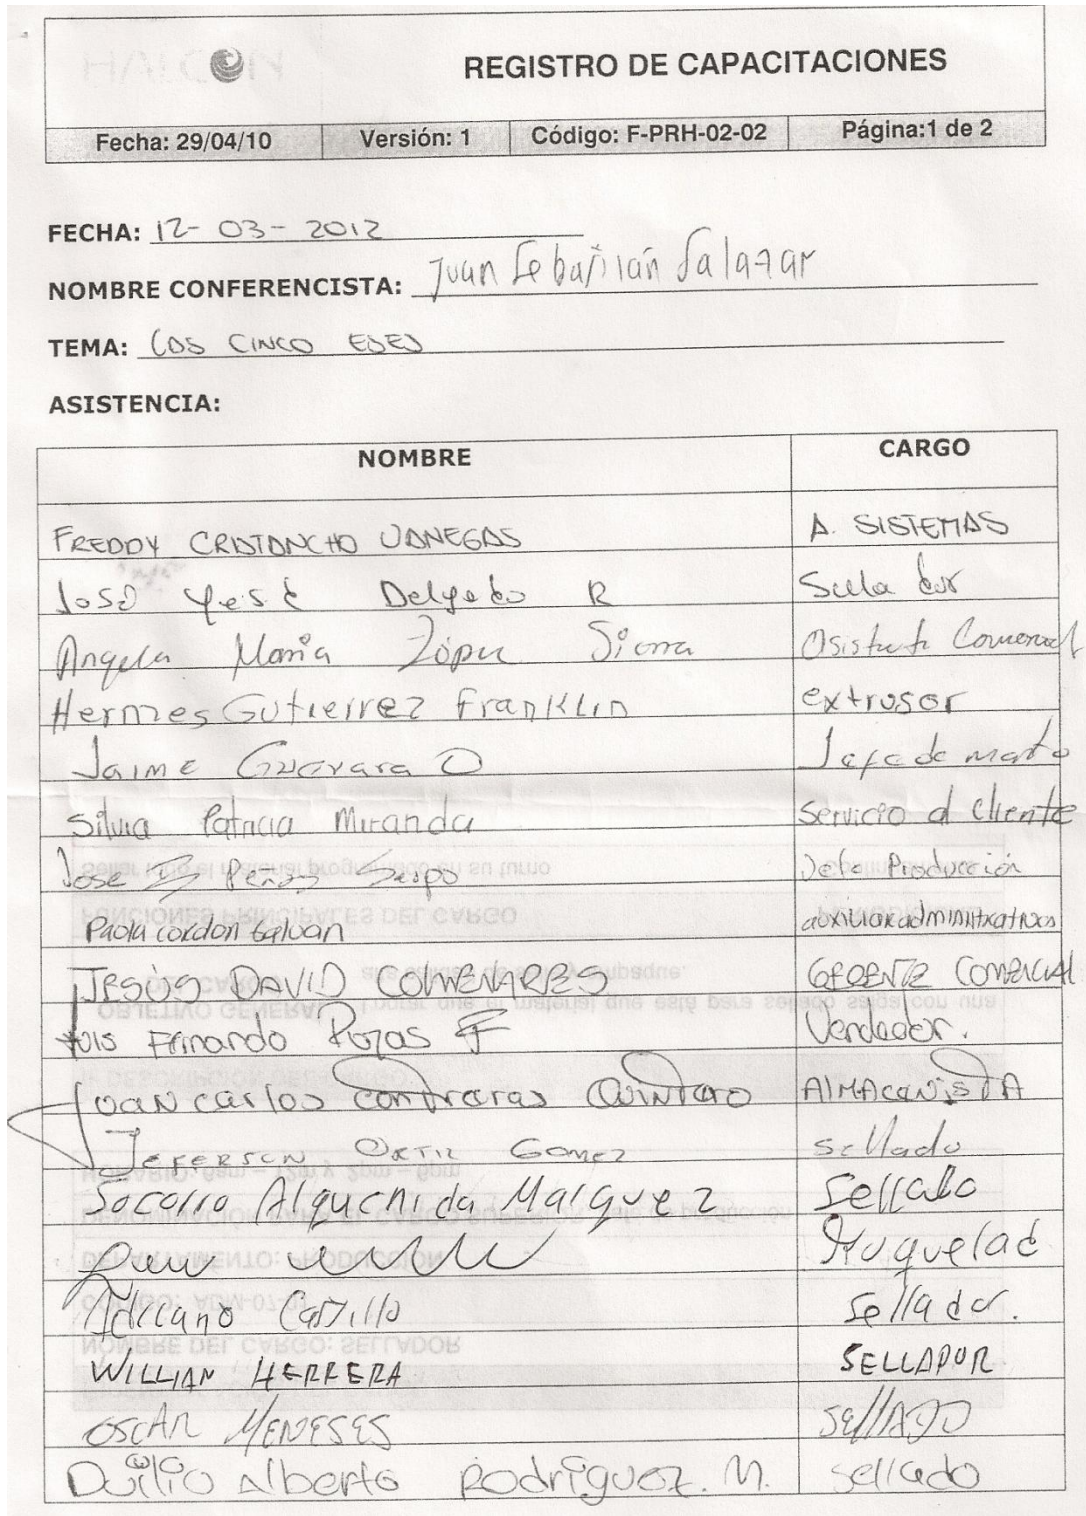 HALCON
REGISTRO DE CAPACITACIONES
Fecha: 29/04/10 Versión: 1 Código: F-PRH-02-02 Página:1 de 2
FECHA: 12-03-2012
NOMBRE CONFERENCISTA: Juan Sebastián Salazar
TEMA: LOS CINCO ESES
ASISTENCIA:
NOMBRE CARGO
FREDDY CRISTANCHO VANEGAS A. SISTEMAS
José Yesé Delgado R Sellador
Angela Maria López Sierra Asistente Comercial
Hermes Gutierrez Franklin extrusor
Jaime Guevara O Jefe de manto
Silvia Patricia Miranda Servicio al Cliente
Jose Peñas Jefe Producción
Paola cordon Galvan auxiliar administrativos
JESÚS DAVID COLMENARES GERENTE COMERCIAL
Luis Fernando Rojas Vendedor.
Juan carlos contreras Quintero AlMAceNisTA
JEFERSON ORTIZ GOMEZ sellado
Socorro Alquichida Marquez Sellado
Troquelad
Adriano Castillo Sellador.
WILLIAN HERRERA SELLADOR
OSCAR MENESES SEllADO
Duilio Alberto Rodriguez. M. sellado